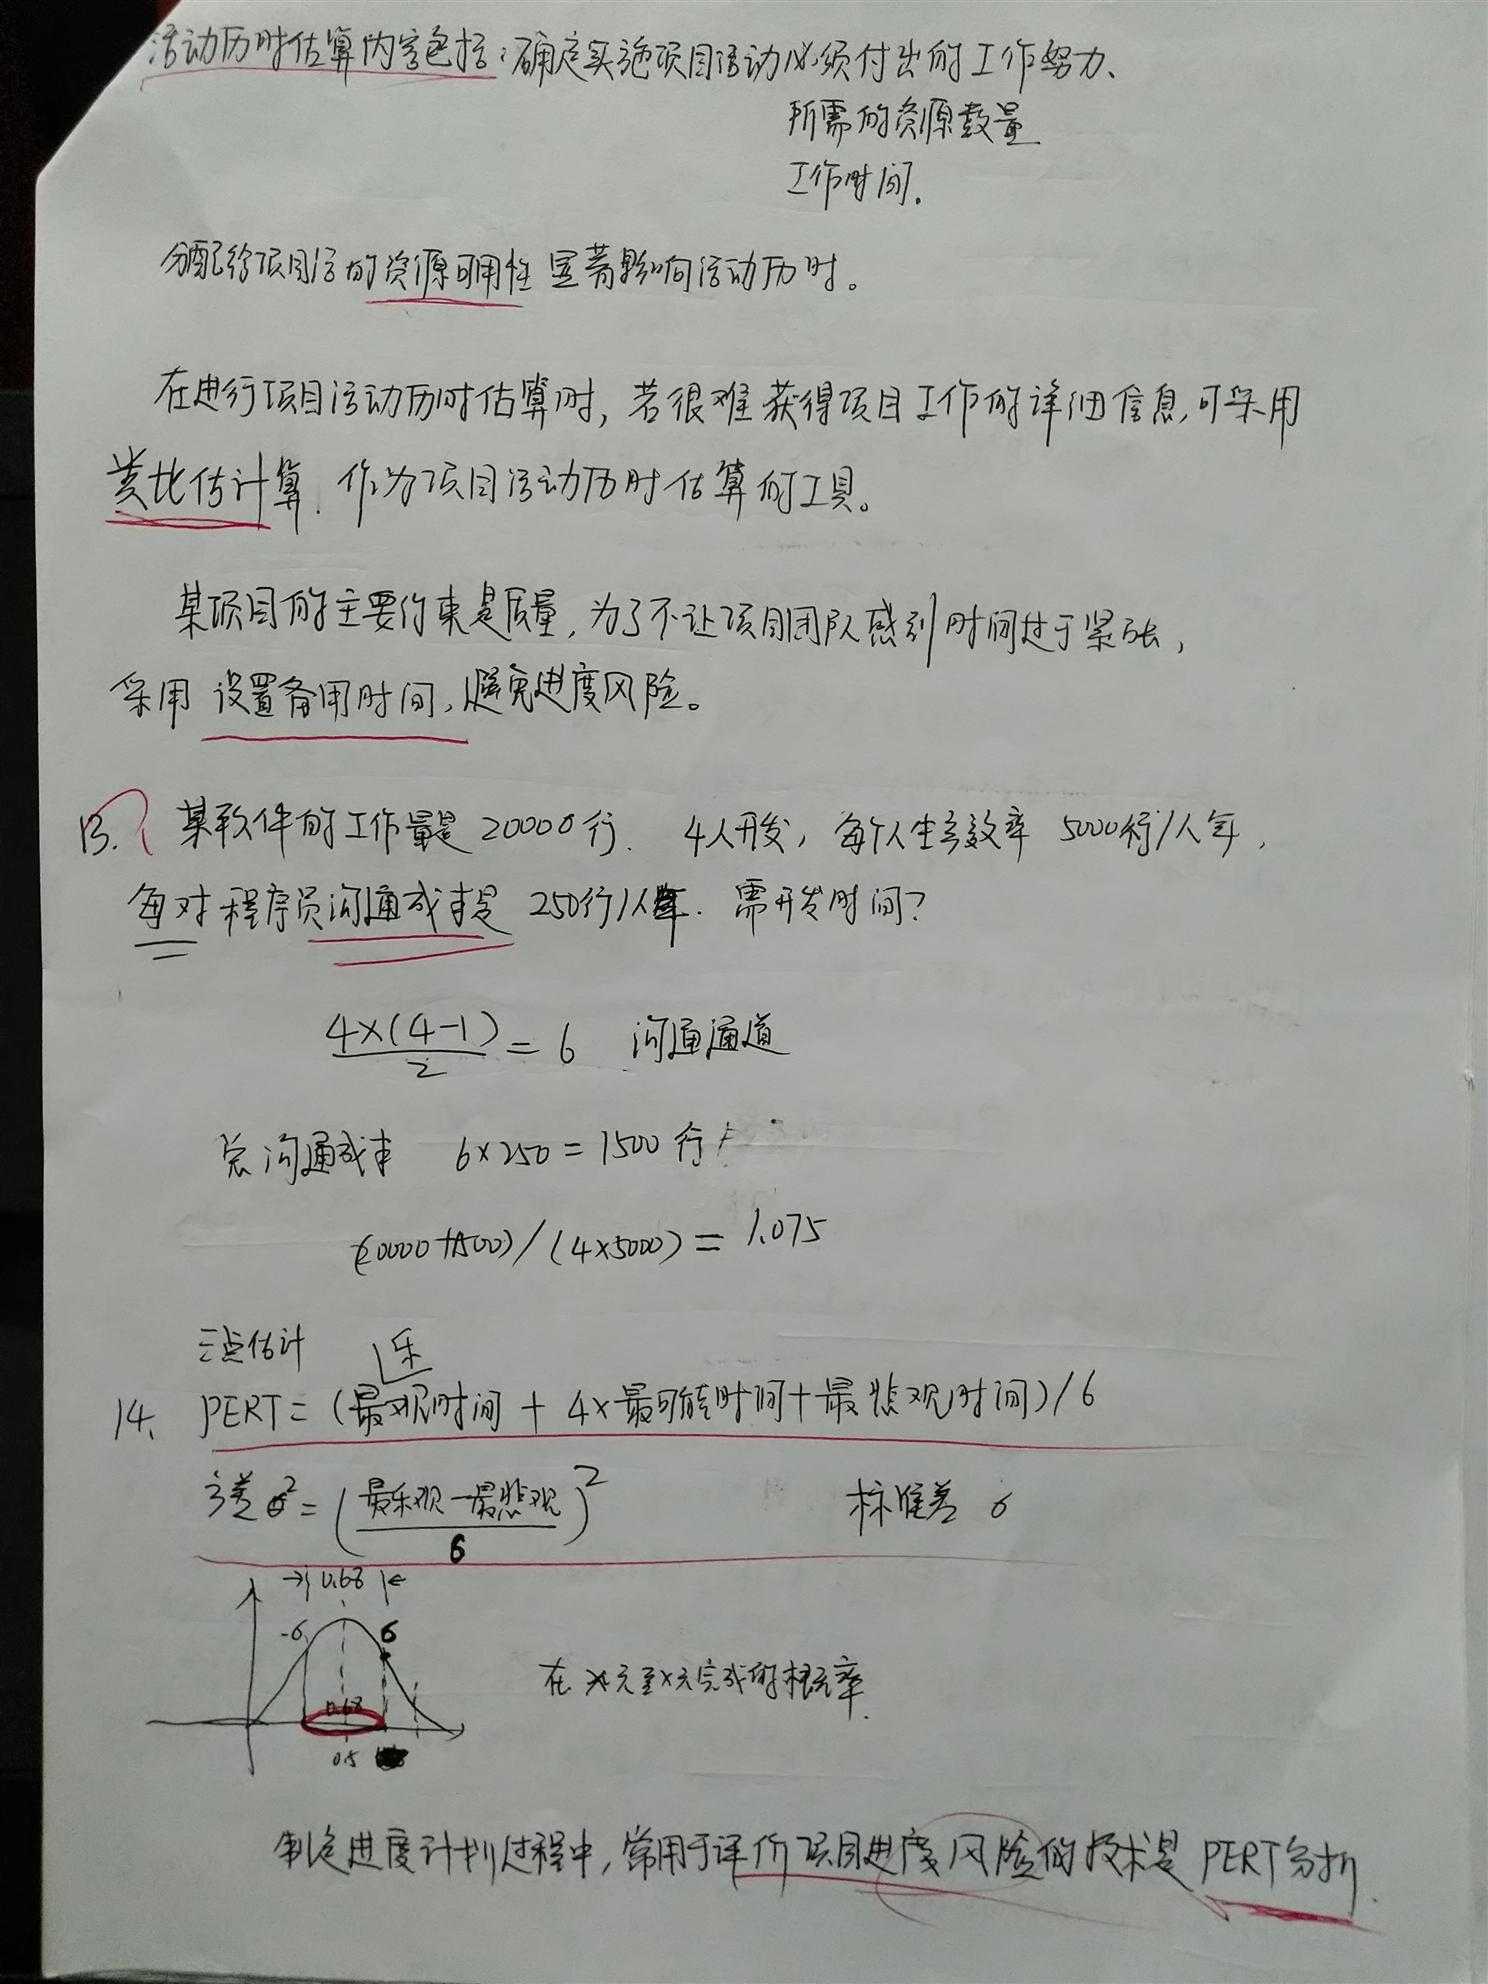 活动历时估算内容包括：确定实施项目活动必须付出的工作努力、
所需的资源数量
工作时间.
分配给项目活的资源可用性 显著影响活动历时。
在进行项目活动历时估算时, 若很难获得项目工作的详细信息,可采用
类比估计算. 作为项目活动历时估算的工具。
某项目的主要约束是质量, 为了不让项目团队感到时间过于紧张,
采用 设置备用时间, 避免进度风险。
13. 某软件的工作量是 20000行. 4人开发, 每个人生产效率 5000行/人年,
每对程序员沟通成本是 250行/人年. 需开发时间?
4×(4-1)/2 = 6 沟通通道
总沟通成本 6×250=1500 行/
(20000+1500)/(4×5000) = 1.075
三点估计 乐
14. PERT = (最观时间 + 4×最可能时间+最悲观时间)/6
方差 σ²= (最乐观-最悲观/6)² 标准差 σ
→| 0.68 |←
-σ σ
0.68
0.5
在 x天至x天完成的概率.
制定进度计划过程中, 常用于评价项目进度风险的技术是 PERT分析.